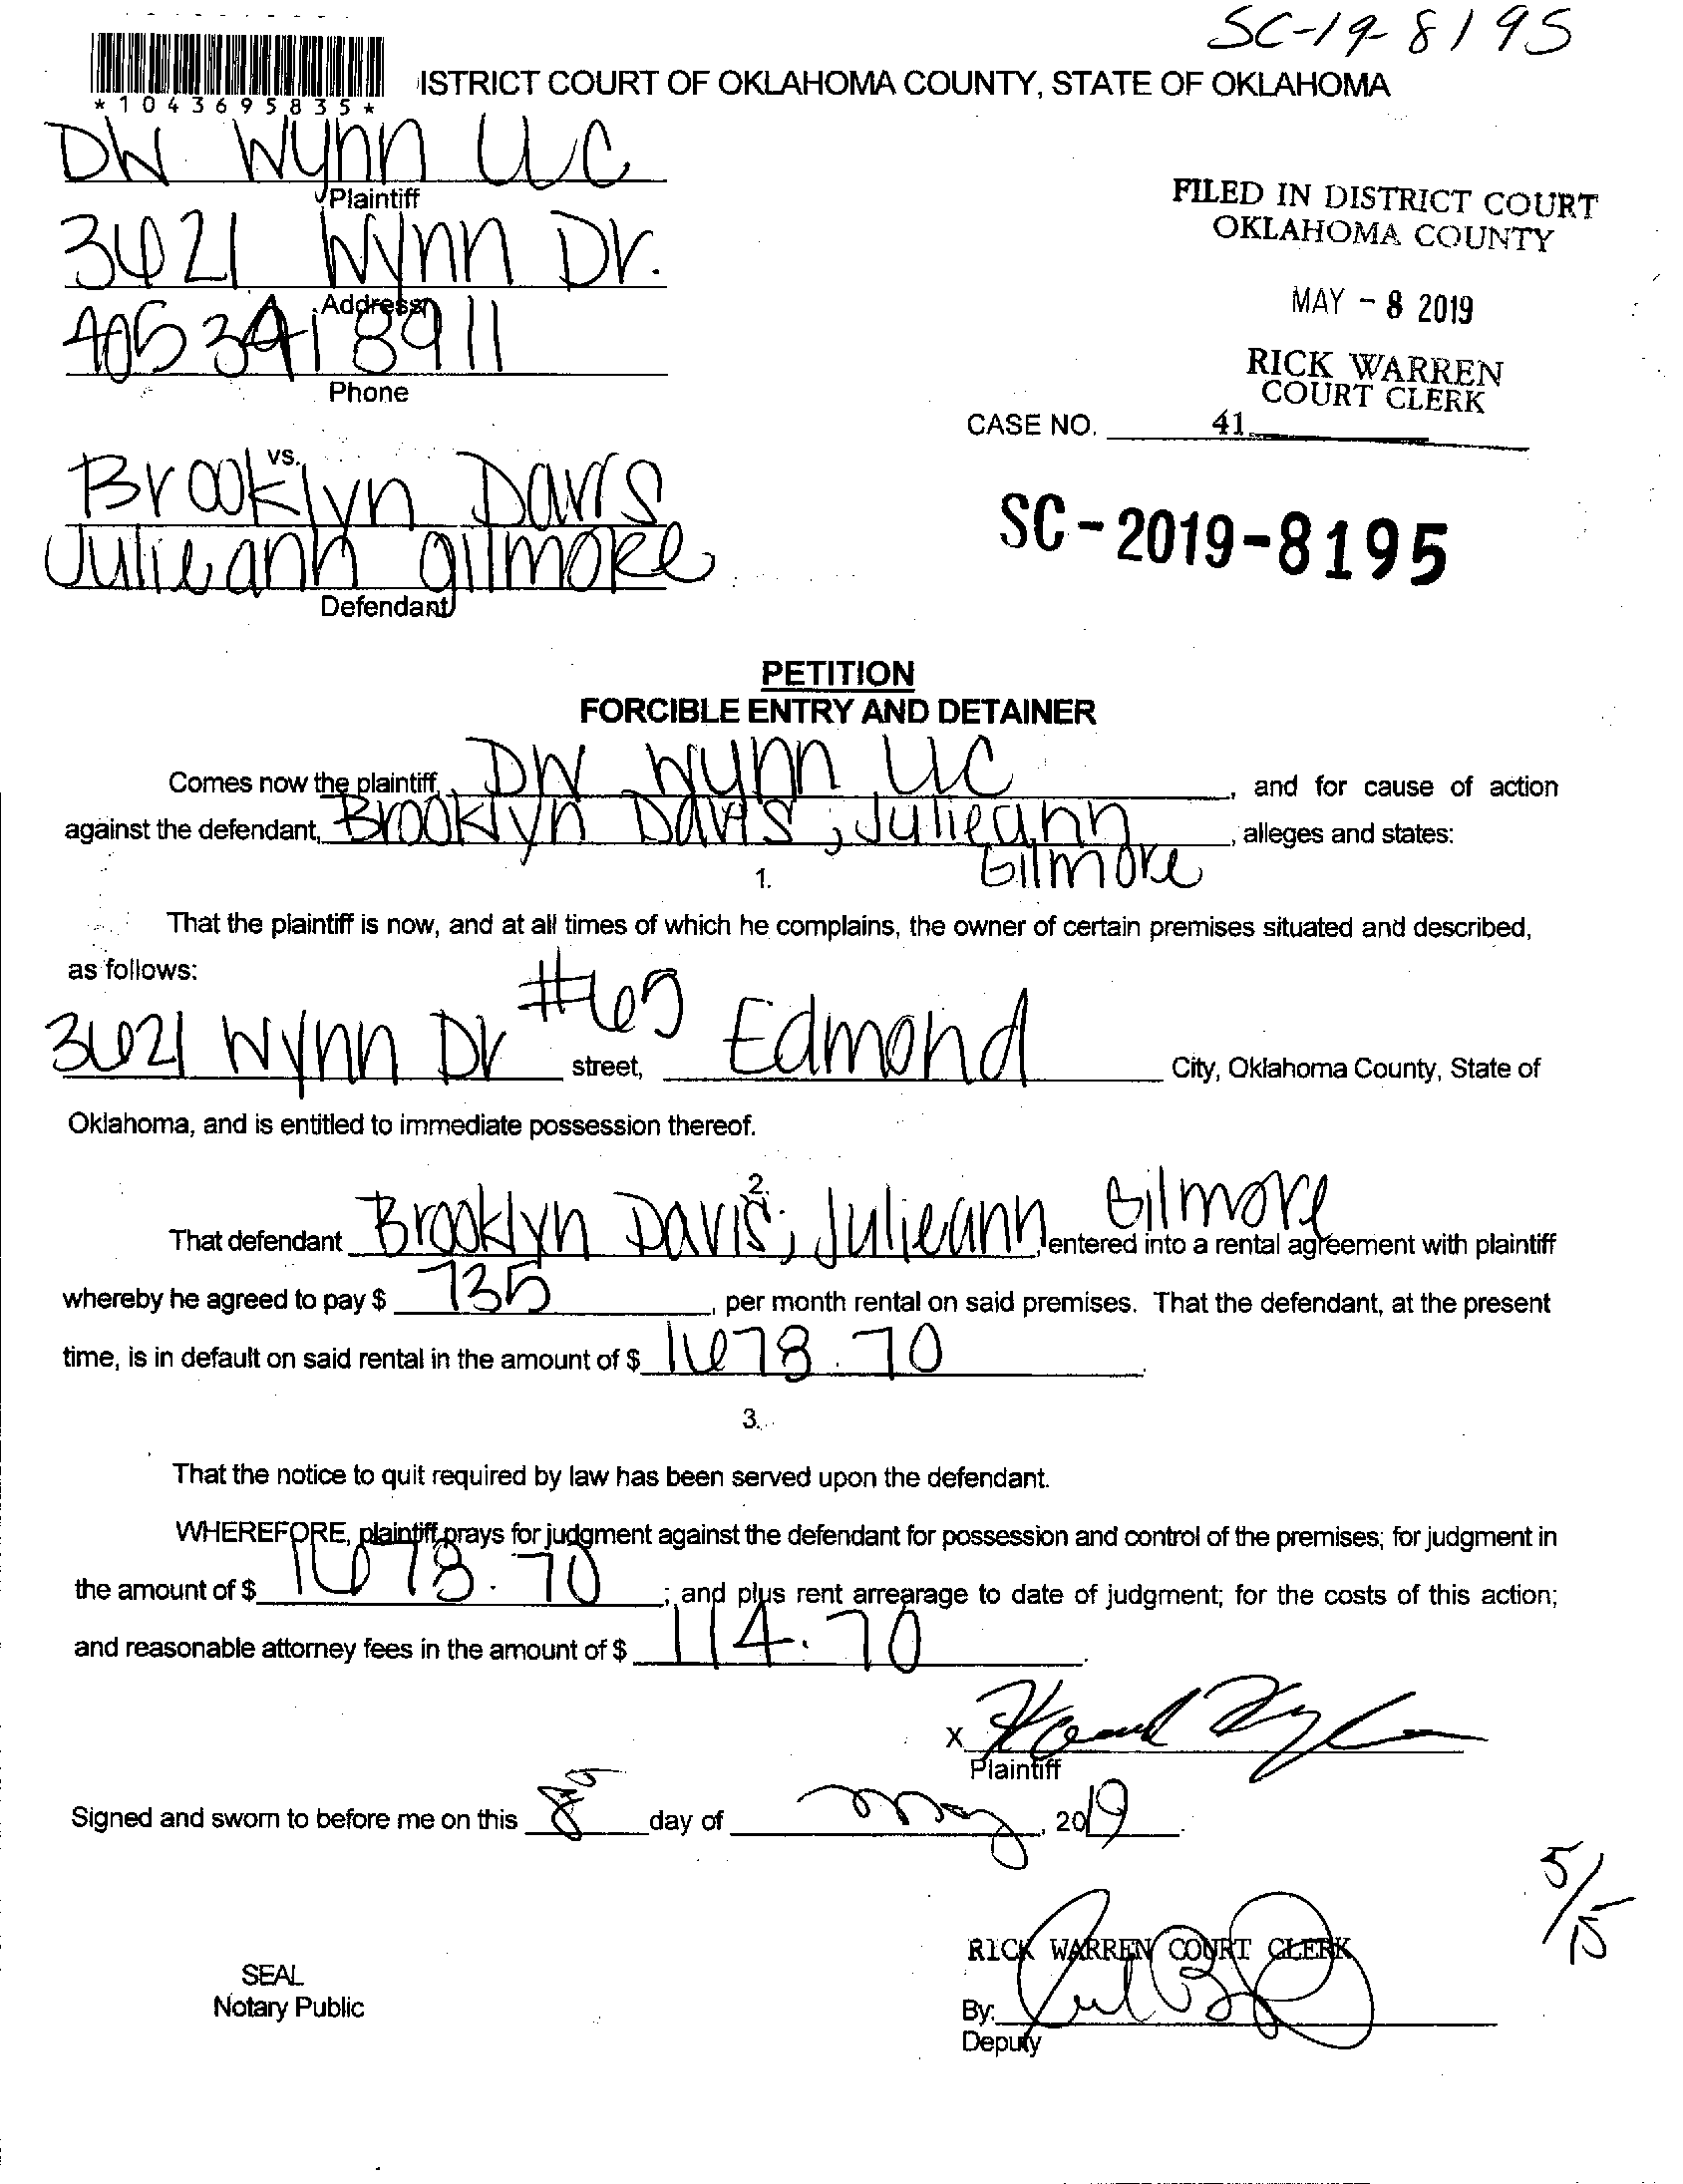 SC-19-8195
*1043695835*
ISTRICT COURT OF OKLAHOMA COUNTY, STATE OF OKLAHOMA
DW Wynn LLC
Plaintiff
FILED IN DISTRICT COURT
OKLAHOMA COUNTY
3621 Wynn Dr.
Address
MAY - 8 2019
405 341 8911
Phone
RICK WARREN
COURT CLERK
CASE NO. 41
vs.
Brooklyn Davis
Julieann Gilmore
Defendant
SC-2019-8195
PETITION
FORCIBLE ENTRY AND DETAINER
Comes now the plaintiff, DW Wynn LLC, and for cause of action
against the defendant, Brooklyn Davis; Julieann Gilmore, alleges and states:
1.
That the plaintiff is now, and at all times of which he complains, the owner of certain premises situated and described,
as follows:
3621 Wynn Dr #65 street, Edmond City, Oklahoma County, State of
Oklahoma, and is entitled to immediate possession thereof.
2.
That defendant Brooklyn Davis; Julieann Gilmore, entered into a rental agreement with plaintiff
whereby he agreed to pay $ 735, per month rental on said premises. That the defendant, at the present
time, is in default on said rental in the amount of $ 1678.70.
3.
That the notice to quit required by law has been served upon the defendant.
WHEREFORE, plaintiff prays for judgment against the defendant for possession and control of the premises; for judgment in
the amount of $ 1678.70; and plus rent arrearage to date of judgment; for the costs of this action;
and reasonable attorney fees in the amount of $ 114.70.
X
Plaintiff
Signed and sworn to before me on this 8 day of May, 2019.
5/15
RICK WARREN COURT CLERK
SEAL
Notary Public
By:
Deputy